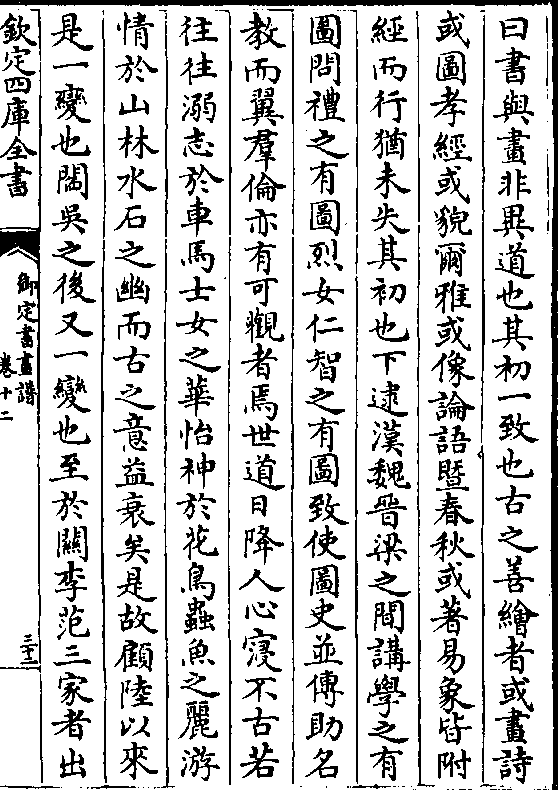 曰書與畫非異道也其初一致也古之善繪者或畫詩
或圖孝經或貌爾雅或像論語暨春秋或著易象皆附
經而行猶未失其初也下逮漢魏晉梁之間講學之有
圖問禮之有圖烈女仁智之有圖致使圖史並傳助名
教而翼羣倫亦有可觀者焉世道日降人心寖不古若
往往溺志於車馬士女之華怡神於花鳥蟲魚之麗游
情於山林水石之幽而古之意益衰矣是故顧陸以來
是一變也閻吳之後又一變也至於關李范三家者出
欽定四庫全書
御定書畫譜
卷十二
三十二